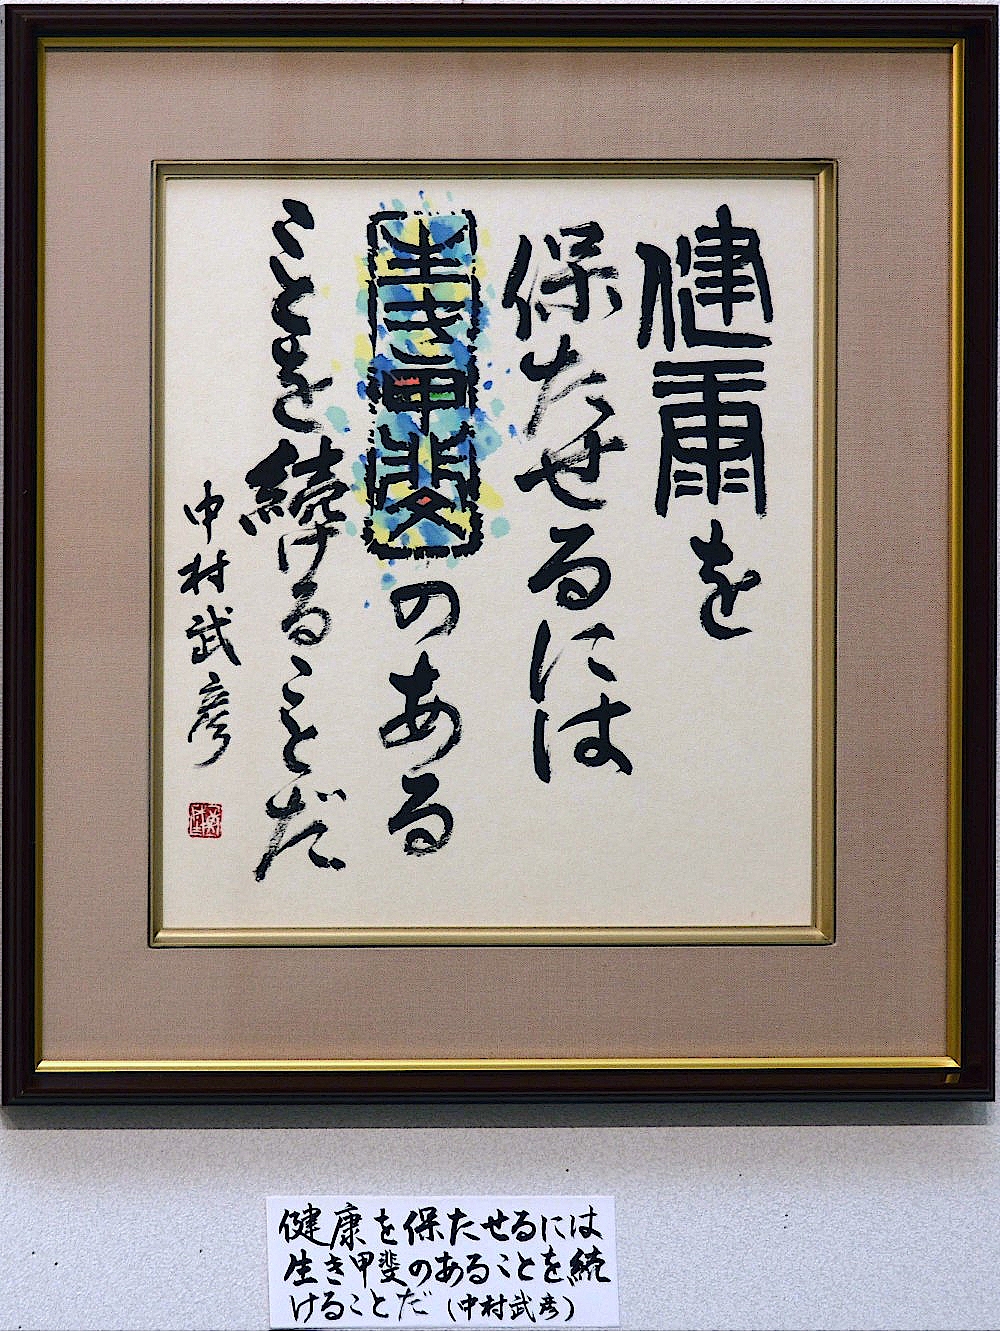 健康を
保たせるには
生き甲斐のある
ことを続けることだ
中村武彦
健康を保たせるには
生き甲斐のあることを続
けることだ(中村武彦)